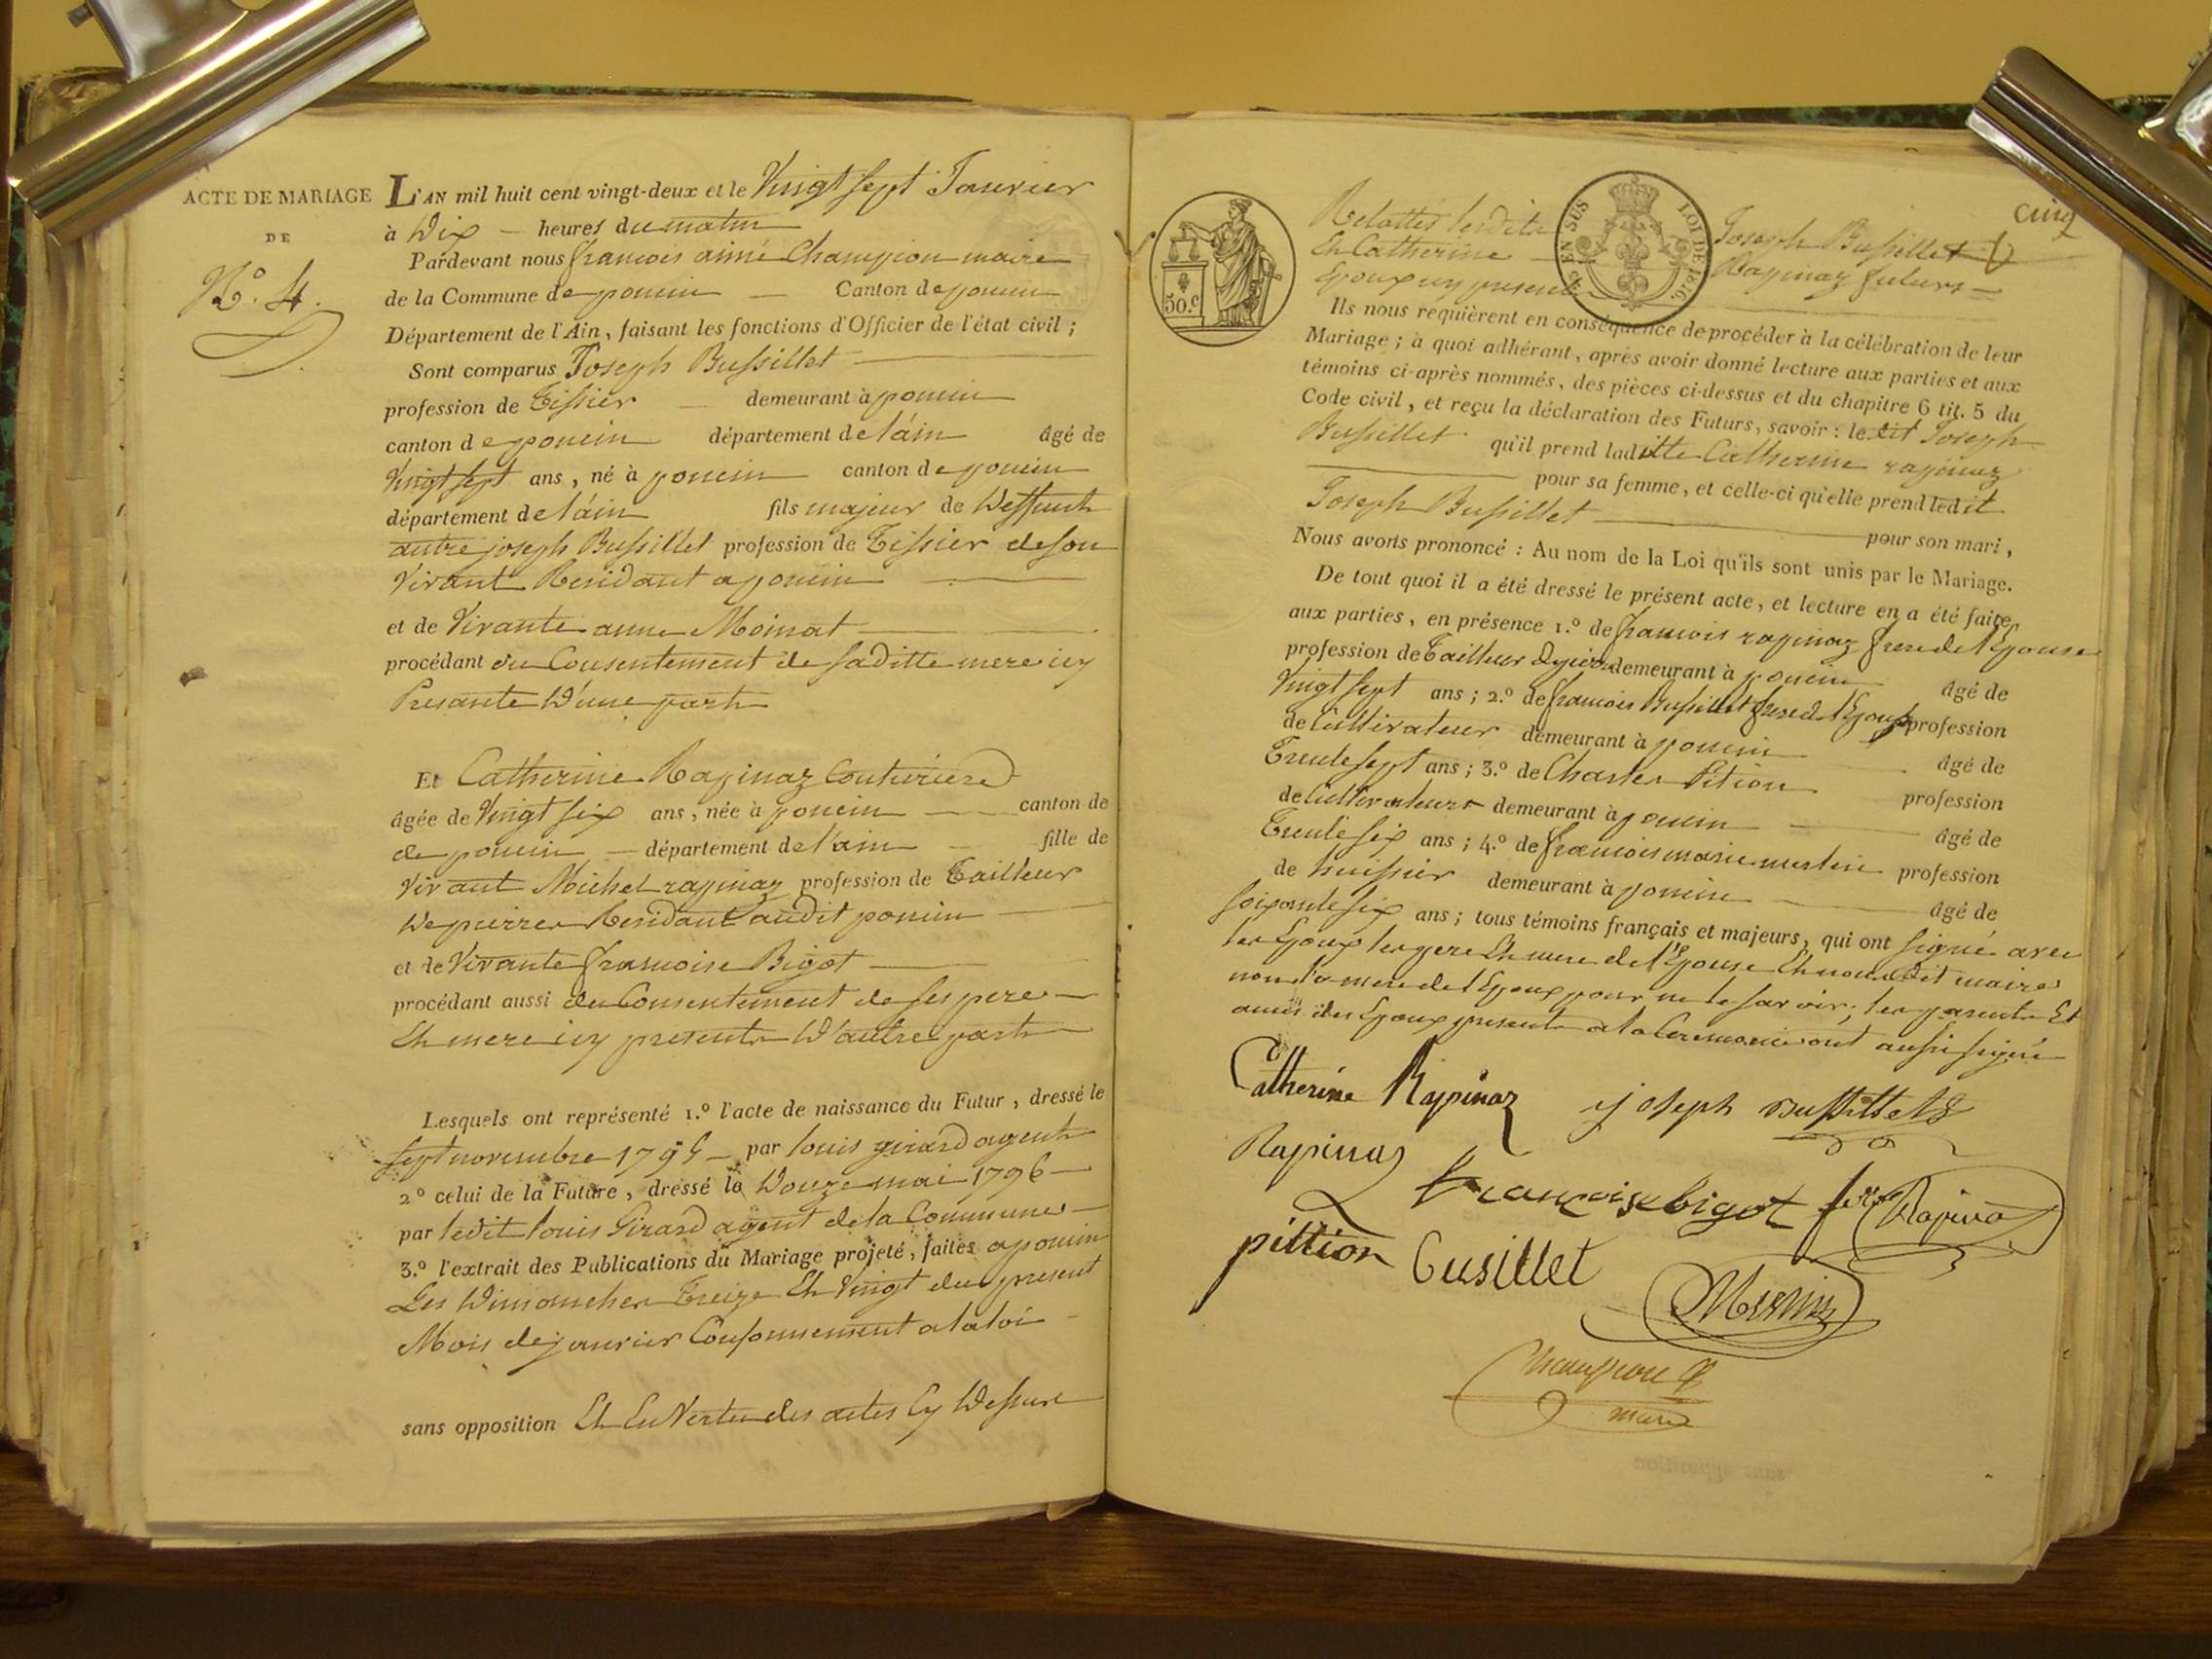 ACTE DE MARIAGE
DE
N.º 4.
L'AN mil huit cent vingt-deux et le Vingt sept Janvier
à Dix heures du matin
Pardevant nous françois aimé Champion maire
de la Commune de poncin Canton de poncin
Département de l'Ain, faisant les fonctions d'Officier de l'état civil ;
Sont comparus Joseph Bussillet
profession de Tissier demeurant à poncin
canton de poncin département de l'ain âgé de
Vingt sept ans, né à poncin canton de poncin
département de l'ain fils majeur de Deffunt
autre joseph Bussillet profession de Tissier de son
Vivant Residant a poncin
et de Vivante anne Moinat
procédant du Consentement de sa ditte mere icy
Presante D'une part
Et Catherine Rapinaz Couturiere
âgée de Vingt six ans, née à poncin canton de
de poncin département de l'ain fille de
Vivant Michel rapinaz profession de Tailleur
De pierres Residant audit poncin
et de Vivante francoise Bigot
procédant aussi du Consentement de ses pere
Et mere icy presents D'autre part
Lesquels ont représenté 1.º l'acte de naissance du Futur, dressé le
sept novembre 1795 par louis girard agent
2º celui de la Future, dressé le Douze mai 1796
par ledit louis Girard agent de la Commune
3.º l'extrait des Publications du Mariage projeté, faites a poncin
Les Dimanches Treize Et Vingt du present
Mois de janvier Conformement a la loi
sans opposition Et En Vertu des actes Cy Dessus
cinq
Relattés lesdits Joseph Bussillet
Et Catherine Rapinaz futurs
Epoux icy presents
50.c
EN SUS
LOI DE 1816
Ils nous requièrent en conséquence de procéder à la célébration de leur
Mariage ; à quoi adhérant, après avoir donné lecture aux parties et aux
témoins ci-après nommés, des pièces ci-dessus et du chapitre 6 tit. 5 du
Code civil, et reçu la déclaration des Futurs, savoir : ledit Joseph
Bussillet qu'il prend laditte Catherine rapinaz
pour sa femme, et celle-ci qu'elle prend ledit
Joseph Bussillet pour son mari,
Nous avons prononcé : Au nom de la Loi qu'ils sont unis par le Mariage.
De tout quoi il a été dressé le présent acte, et lecture en a été faite
aux parties, en présence 1.º de francois rapinaz frere de l'Epouse
profession de Tailleur de pierre demeurant à poncin âgé de
Vingt sept ans ; 2.º de francois Bussillet frere de l'Epoux profession
de Cultivateur demeurant à poncin âgé de
Trente sept ans ; 3.º de Charles Pition profession
de Cultivateur demeurant à poncin âgé de
Trente six ans ; 4.º de francois marie profession
de huissier demeurant à poncin âgé de
soixante six ans ; tous témoins français et majeurs, qui ont signé avec
les Epoux les pere Et mere de l'Epouse Et nous dit maire
non la mere de l'Epoux pour ne le savoir, les parents Et
amis des Epoux presents a la Ceremonie ont aussi signé
Catherine Rapinaz joseph Bussillet
Rapinaz
francoise bigot Rapinaz
pittion Busillet
Champion
maire